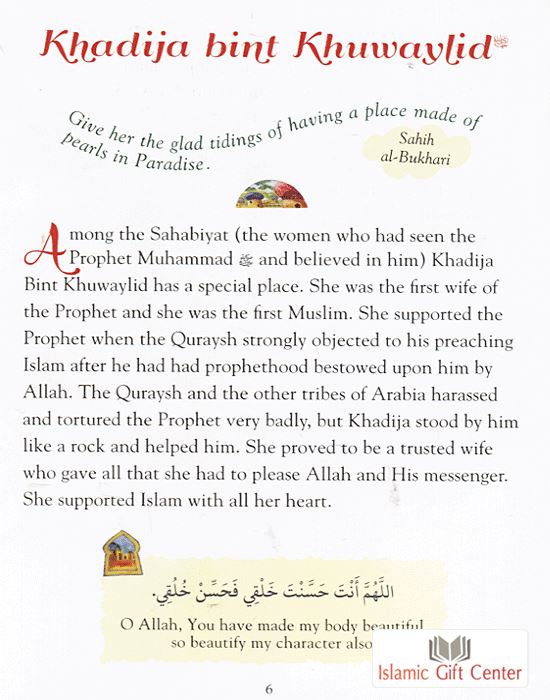 Khadija bint Khuwaylid ﷺ
Give her the glad tidings of having a place made of
pearls in Paradise.
Sahih
al-Bukhari
Among the Sahabiyat (the women who had seen the
Prophet Muhammad ﷺ and believed in him) Khadija
Bint Khuwaylid has a special place. She was the first wife of
the Prophet and she was the first Muslim. She supported the
Prophet when the Quraysh strongly objected to his preaching
Islam after he had had prophethood bestowed upon him by
Allah. The Quraysh and the other tribes of Arabia harassed
and tortured the Prophet very badly, but Khadija stood by him
like a rock and helped him. She proved to be a trusted wife
who gave all that she had to please Allah and His messenger.
She supported Islam with all her heart.
اللَّهُمَّ أَنْتَ حَسَّنْتَ خَلْقِي فَحَسِّنْ خُلُقِي.
O Allah, You have made my body beautiful
so beautify my character also
Islamic Gift Center
6